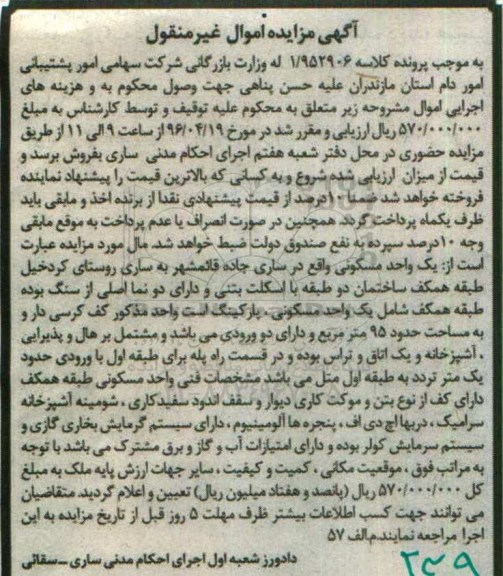 آگهی مزایده اموال غیرمنقول
به موجب پرونده کلاسه ۱/۹۵۲۹۰۶ له وزارت بازرگانی شرکت سهامی امور پشتیبانی
امور دام استان مازندران علیه حسن پناهی جهت وصول محکوم به و هزینه های
اجرایی اموال مشروحه زیر متعلق به محکوم علیه توقیف و توسط کارشناس به مبلغ
۵۷۰/۰۰۰/۰۰۰ ریال ارزیابی و مقرر شد در مورخ ۹۶/۰۴/۱۹ از ساعت ۹ الی ۱۱ از طریق
مزایده حضوری در محل دفتر شعبه هفتم اجرای احکام مدنی ساری بفروش برسد و
قیمت از میزان ارزیابی شده شروع و به کسانی که بالاترین قیمت را پیشنهاد نماینده
فروخته خواهد شد ضمنا ۱۰درصد از قیمت پیشنهادی نقدا از برنده اخذ و مابقی باید
ظرف یکماه پرداخت گردد همچنین در صورت انصراف یا عدم پرداخت به موقع مابقی
وجه ۱۰درصد سپرده به نفع صندوق دولت ضبط خواهد شد. مال مورد مزایده عبارت
است از: یک واحد مسکونی واقع در ساری جاده قائمشهر به ساری روستای کردخیل
طبقه همکف ساختمان دو طبقه با اسکلت بتنی و دارای دو نما اصلی از سنگ بوده
طبقه همکف شامل یک واحد مسکونی ، پارکینگ است واحد مذکور کف کرسی دار و
به مساحت حدود ۹۵ متر مربع و دارای دو ورودی می باشد و مشتمل بر هال و پذیرایی
، آشپزخانه و یک اتاق و تراس بوده و در قسمت راه پله برای طبقه اول با ورودی حدود
یک متر تردد به طبقه اول متل می باشد مشخصات فنی واحد مسکونی طبقه همکف
دارای کف از نوع بتن و موکت کاری دیوار و سقف اندود سفیدکاری ، شومینه آشپزخانه
سرامیک ، دربها اچ دی اف ، پنجره ها آلومینیوم ، دارای سیستم گرمایش بخاری گازی و
سیستم سرمایش کولر بوده و دارای امتیازات آب و گاز و برق مشترک می باشد با توجه
به مراتب فوق ، موقعیت مکانی ، کمیت و کیفیت ، سایر جهات ارزش پایه ملک به مبلغ
کل ۵۷۰/۰۰۰/۰۰۰ ریال (پانصد و هفتاد میلیون ریال) تعیین و اعلام گردید. متقاضیان
می توانند جهت کسب اطلاعات بیشتر ظرف مهلت ۵ روز قبل از تاریخ مزایده به این
اجرا مراجعه نمایند.م.الف ۵۷
دادورز شعبه اول اجرای احکام مدنی ساری –سقائی
۲۳۹